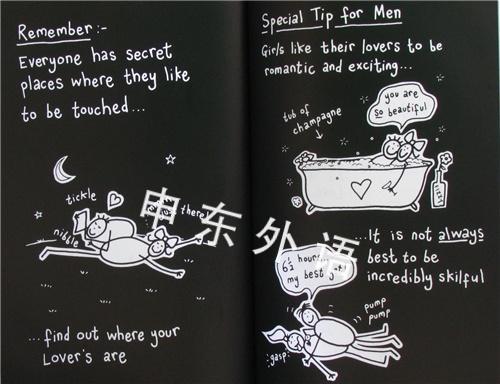 Remember :-
Everyone has secret
places where they like
to be touched...
tickle
there!
nibble
...find out where your
Lover's are
Special Tip for Men
Girls like their lovers to be
romantic and exciting...
you are
so beautiful
tub of
champagne
...It is not always
best to be
incredibly skilful
6½ hours...
my best yet!
pump
pump
gasp
申东外语